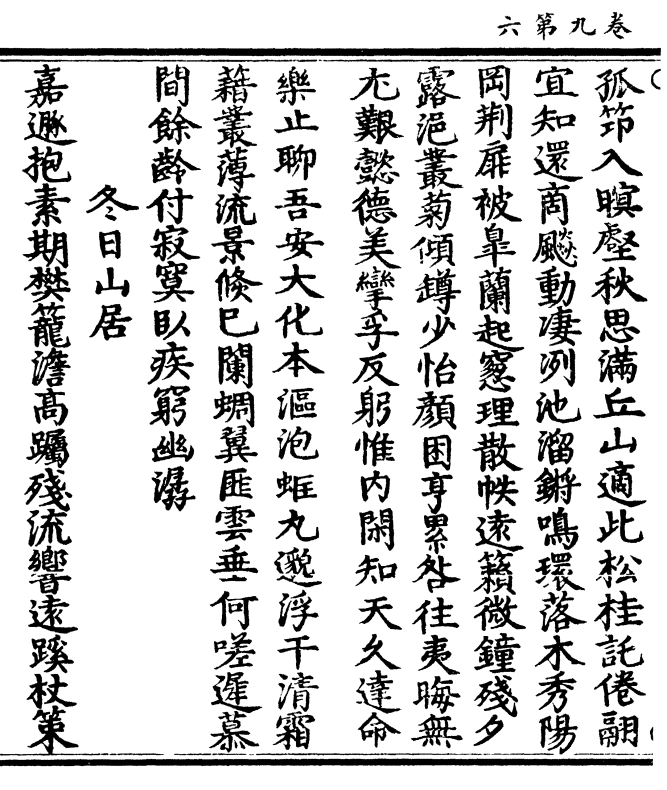 卷九第六
孤筇入暝壑秋思滿丘山適此松桂託倦翮
宜知還商飇動凄冽池溜鏘鳴環落木秀陽
岡荆扉被皐蘭起窓理散帙遠籟微鐘殘夕
露浥叢菊傾罇少怡顏困亨累咎往夷晦無
尤艱懿德美孿孚反躬惟内閑知天久達命
樂止聊吾安大化本漚泡蚷丸邈浮干清霜
藉叢薄流景倏已闌蜩翼匪雲垂何嗟遲慕
間餘齡付寂寞臥疾窮幽潺
冬日山居
嘉遯抱素期樊籠澹高躅殘流響遠蹊杖策